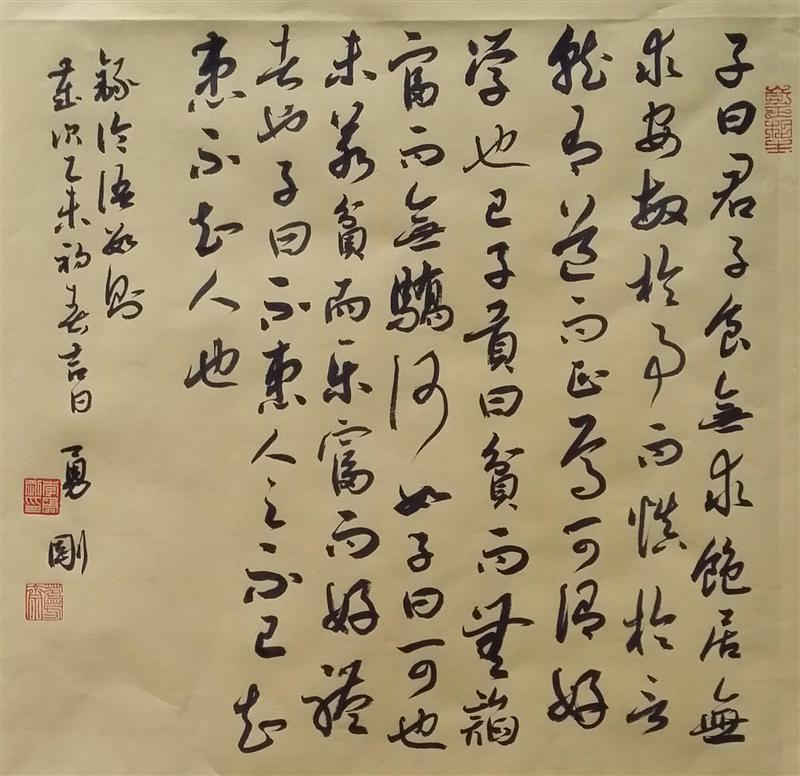 子曰君子食無求飽居無
求安敏於事而慎於言
就有道而正焉可謂好
学也已子貢曰貧而無諂
富而無驕何如子曰可也
未若貧而乐富而好禮
者也子曰不患人之不己知
患不知人也
録論語数則
歲次乙未初春吉日 勇剛